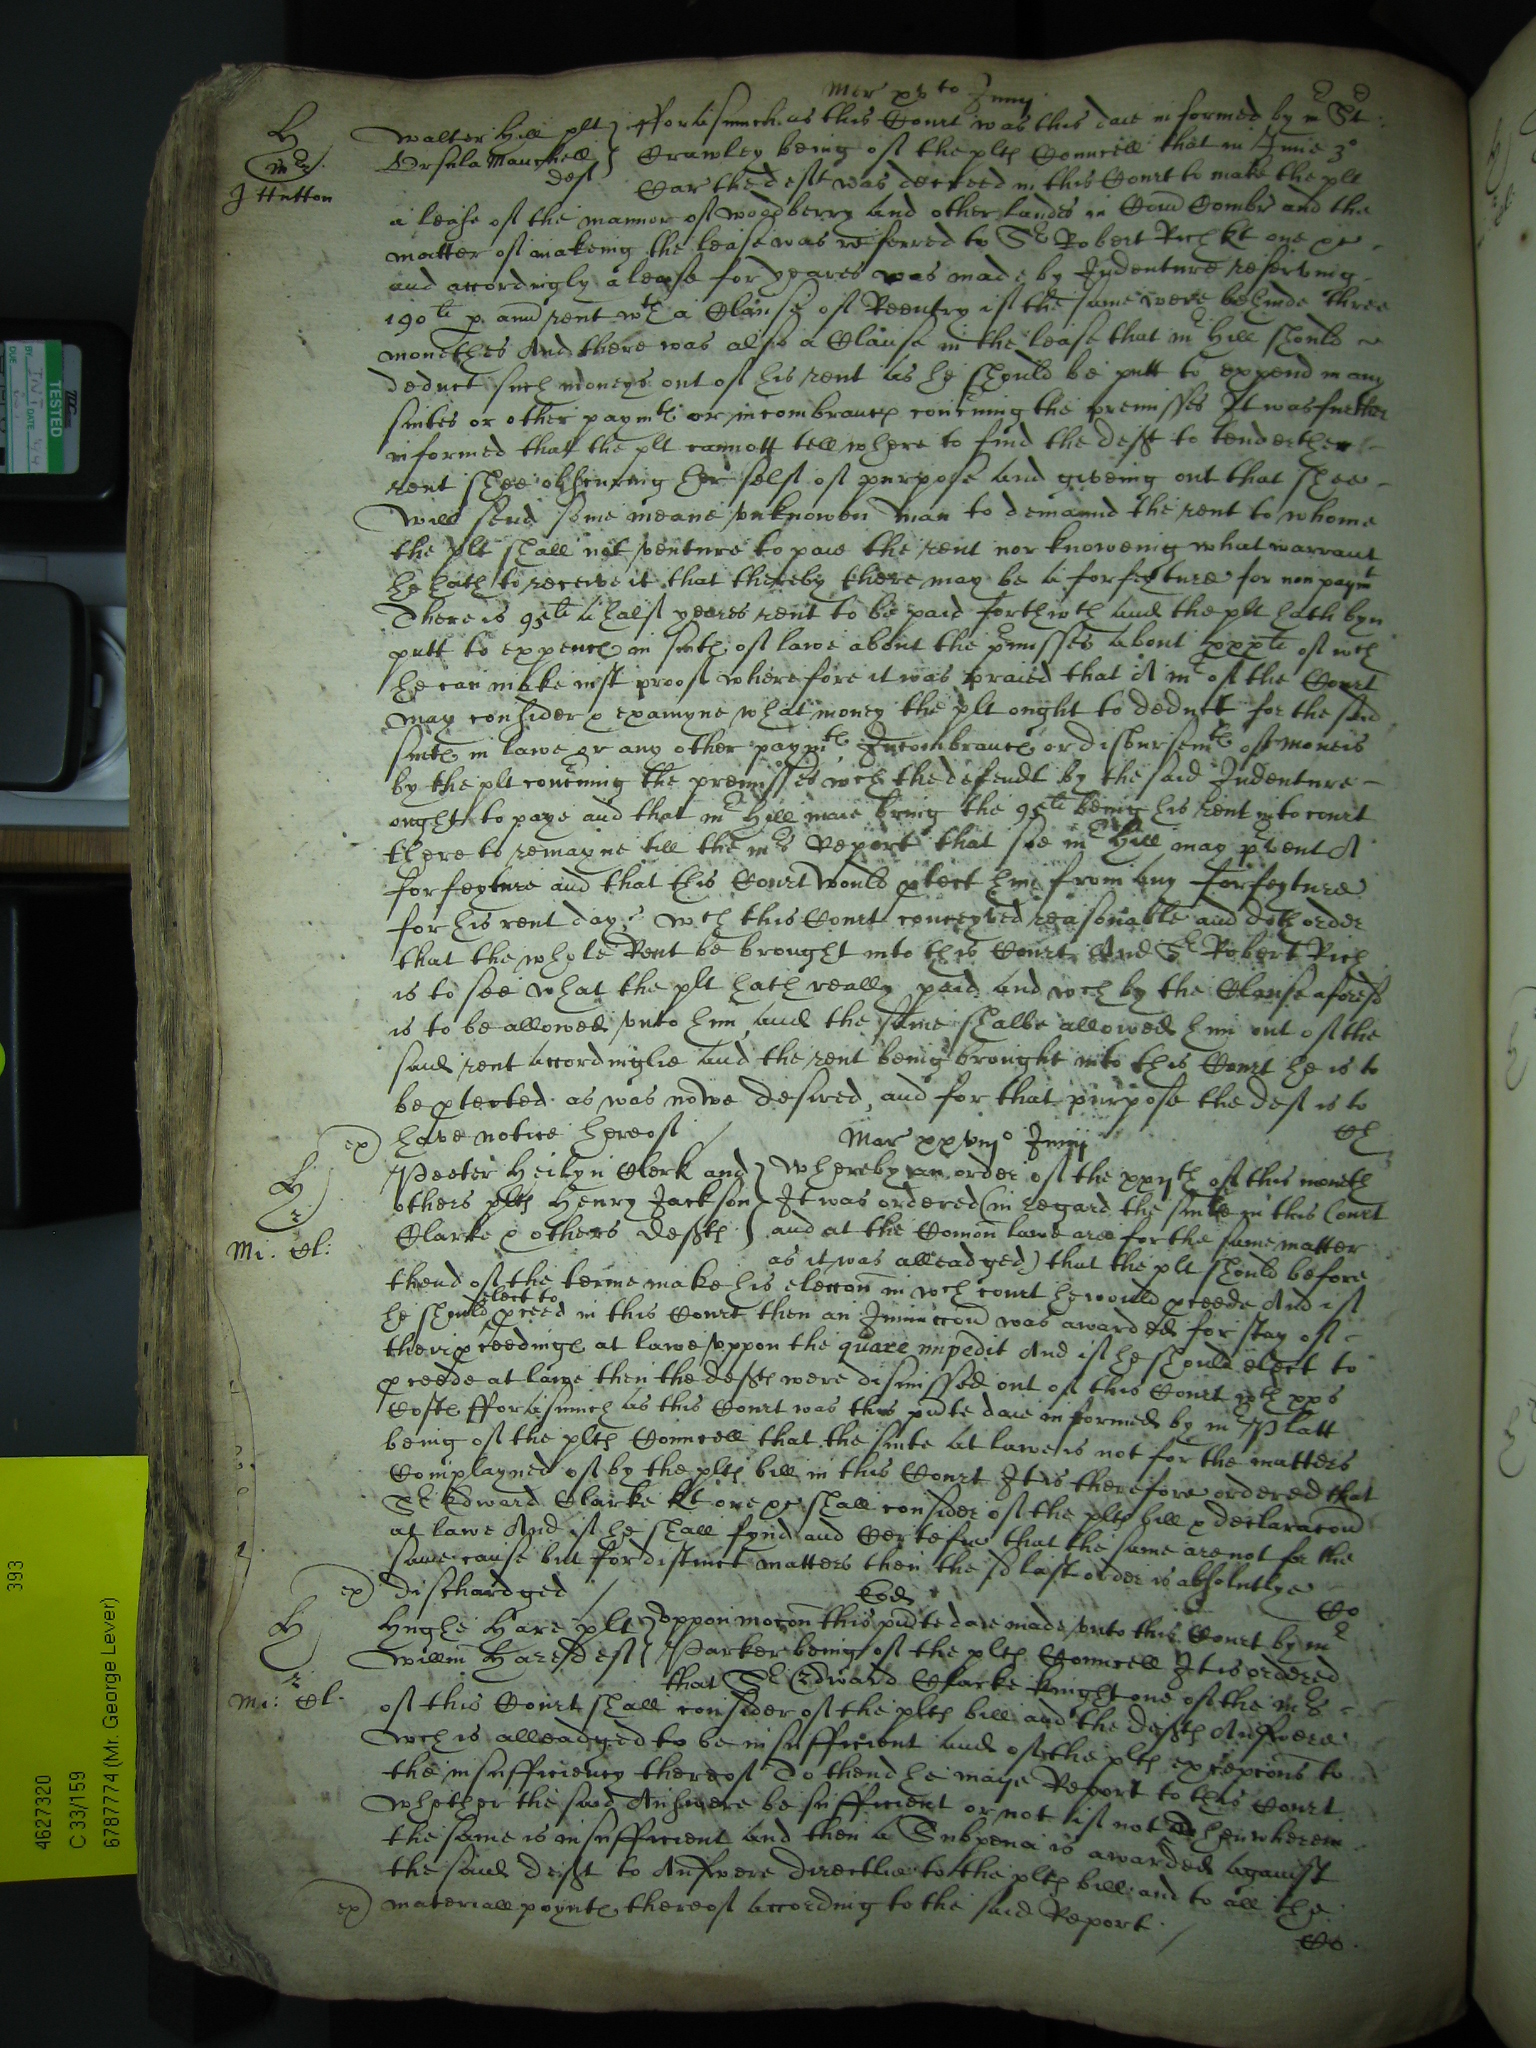 Mer xv to Junij
H
mr
J Hutton
Walter Hill plt } fforasmuch as this Court was this daie informed by mr St
Ursula Maughell deft } Crawley being of the plts Councell that in Junie 3°
Car the deft was decreed in this Court to make the plt
a lease of the mannor of woodberry and other landes in Com and the
matter of makeing the lease was referred to Sr Robert Rich kt one &c
and accordingly a lease for yeares was made by Indenture reserving
190 li p annu rent wth a Clause of Reentry if the same were behinde three
monethes And there was also a Clause in the lease that mr Hill should
deduct such moneys out of his rent as he should be putt to expend in any
suites or other paymts or incombrances concrning the premisses It was further
informed that the plt cannott tell where to find the deft to tender her
rent shee absenting her self of purpose and giveing out that shee
Will send some meane unknowen man to demannd the rent to whome
the plt shall not venture to paie the rent nor knoweing what warrant
he hath to receive it that thereby there may be a forfeyture for non paymt
There is 95 li a half yeares rent to be paid forthwth and the plt hath byn
putt to expences in suits of lawe about the prmisses about xxx li of wch
he can make iust proof wherefore it was praied that A mr of the Court
may consider & examyne what money the plt ought to deduct for the said
suits in lawe or any other paymts Incombrances or disbursemts of moneis
by the plt concrning the premisses wch the defendt by the said Indenture
ought to paye and that mr Hill maie bring the 95 li being his rent into court
there to remayne till the mrs Report that soe mr Hill may prvent A
forfeyture and that this Court would ptect him from any forfeyture
for his rent day wch this Court conceyved reasonable and doth order
that the whole Rent be brought into this Court And Sr Robert Rich
is to see what the plt hath really paid and wch by the Clause aforesd
is to be allowed unto him and the same shalbe allowed him out of the
said rent accordinglie and the rent being brought into this Court he is to
be ptected as was nowe desired, and for that purpose the deft is to
ex) have notice hereof /
Mar xxviij° Junij
H
r
Mi. Cl:
Peeter Heilyn Clerk and } Whereby an order of the xxijth of this moneth
others plts Henry Jackson } It was ordered (in regard the suite in this Court
Clarke & others defts } and at the Comon lawe are for the same matter
as it was alleadged) that the plt should before
thend of the terme make his eleccon in wch court he would pceede And if
he should elect to pceed in this Court then an Iniunccon was awarded for stay of
their pceedings at lawe uppon the quare impedit And if he should elect to
pceede at lawe then the defts were dismissed out of this Court wth xxs
Costs fforasmuch as this Court was this pnte daie informed by mr Platt
being of the plts Councell that the suite at lawe is not for the matters
Complayned of by the plts bill in this Court It is therefore ordered that
Sr Edward Clarke kt one &c shall consider of the plts bill & declaracon
at lawe And if he shall fynd and Certefie that the same are not for the
same cause but for distinct matters then the sd last order is absolutlye
ex) dischardged /
Eod
H
r
Mi: Cl.
Hughe Hare plt } Uppon mocon this pnte daie made unto this Court by mr
Willm Hare deft } Parker being of the plts Councell It is ordered
that Sr Edward Clarke knight one of the mrs
of this Court shall consider of the plts bill and the defts Answere
Wch is alleadged to be insufficient and of the plts excepcons to
the insufficiency thereof To thend he maye Report to this Court
Whether the said Answere be sufficient or not if not then wherein
the same is insufficient and then a Subpena is awarded against
the said deft to Answere directlie to the plts bill and to all the
ex) materiall poynts thereof according to the said Report. /
TESTED
BY
DUE
DATE
4627320
C 33/159
6787774 (Mr. George Lever)
393